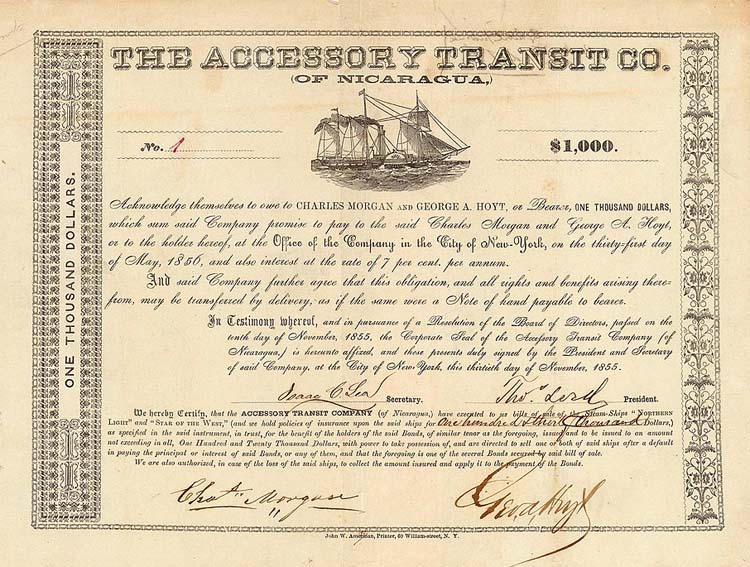 THE ACCESSORY TRANSIT CO.
(OF NICARAGUA,)
No. 1
$1,000.
ONE THOUSAND DOLLARS.
Acknowledge themselves to owe to CHARLES MORGAN AND GEORGE A. HOYT, or Bearer, ONE THOUSAND DOLLARS,
which sum said Company promise to pay to the said Charles Morgan and George A. Hoyt,
or to the holder hereof, at the Office of the Company in the City of New-York, on the thirty-first day
of May, 1856, and also interest at the rate of 7 per cent. per annum.
And said Company further agree that this obligation, and all rights and benefits arising there-
from, may be transferred by delivery, as if the same were a Note of hand payable to bearer.
In Testimony whereof, and in pursuance of a Resolution of the Board of Directors, passed on the
tenth day of November, 1855, the Corporate Seal of the Accessory Transit Company (of
Nicaragua,) is hereunto affixed, and these presents duly signed by the President and Secretary
of said Company, at the City of New-York, this thirtieth day of November, 1855.
Isaac C Lea Secretary. Thos. Lord President.
We hereby Certify, that the ACCESSORY TRANSIT COMPANY (of Nicaragua,) have executed to us bills of sale of the Steam-Ships "NORTHERN
LIGHT" and "STAR OF THE WEST," (and we hold policies of insurance upon the said ships for One hundred & thirty Thousand Dollars,)
as specified in the said instrument, in trust, for the benefit of the holders of the said Bonds, of similar tenor as the foregoing, issued and to be issued to an amount
not exceeding in all, One Hundred and Twenty Thousand Dollars, with power to take possession of, and are directed to sell one or both of said ships after a default
in paying the principal or interest of said Bonds, or any of them, and that the foregoing is one of the several Bonds secured by said bill of sale.
We are also authorized, in case of the loss of the said ships, to collect the amount insured and apply it to the payment of the Bonds.
Chas. Morgan
Geo. A. Hoyt
John W. Amerman, Printer, 60 William-street, N. Y.